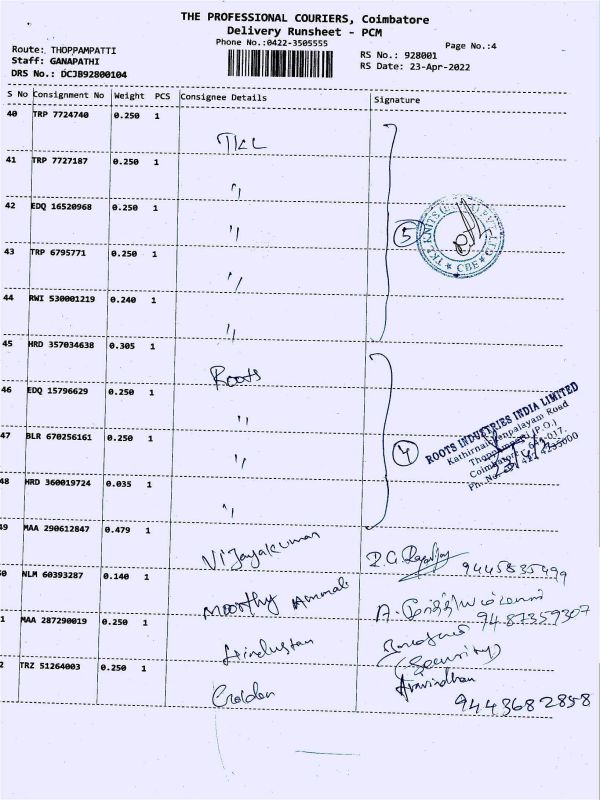 THE PROFESSIONAL COURIERS, Coimbatore
Delivery Runsheet - PCM
Phone No.:0422-3505555
Page No.:4
Route: THOPPAMPATTI
Staff: GANAPATHI
DRS No.: DCJB92800104
RS No.: 928001
RS Date: 23-Apr-2022
S No Consignment No Weight PCS Consignee Details Signature
40 TRP 7724740 0.250 1
TKL
41 TRP 7727187 0.250 1
"
42 EDQ 16520968 0.250 1
"
5
TKL KNITS
CBE
43 TRP 6795771 0.250 1
"
44 RWI 530001219 0.240 1
"
45 HRD 357034638 0.305 1
Roots
46 EDQ 15796629 0.250 1
"
47 BLR 670256161 0.250 1
"
4
ROOTS INDUSTRIES INDIA LIMITED
Kathirnaickenpalayam Road
Thoppampatti (P.O.)
Coimbatore - 641 017.
48 HRD 360019724 0.035 1
"
49 MAA 290612847 0.479 1
Vijayakumar
9445835499
50 NLM 60393287 0.140 1
Moorthy Ammal
9487359307
1 MAA 287290019 0.250 1
Hindustan
(Security)
2 TRZ 51264003 0.250 1
Aravindhan
9443682858